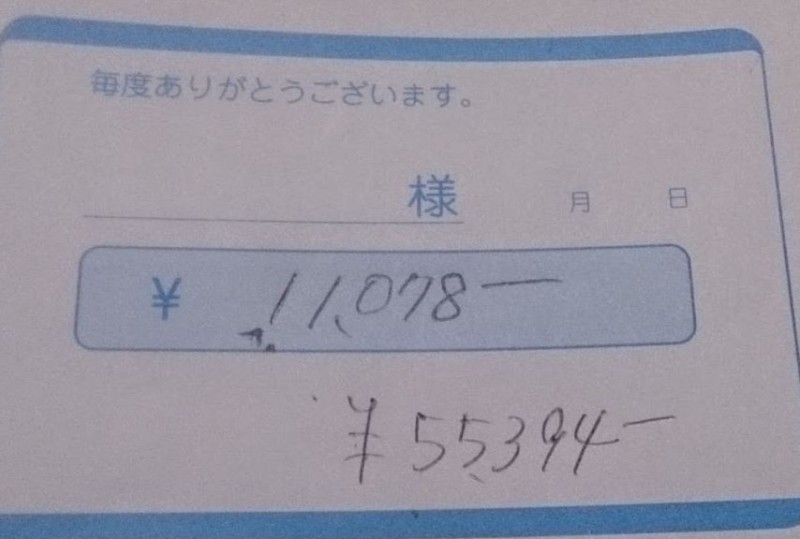 毎度ありがとうございます。
様 月 日
¥ 11,078ー
¥55,394ー